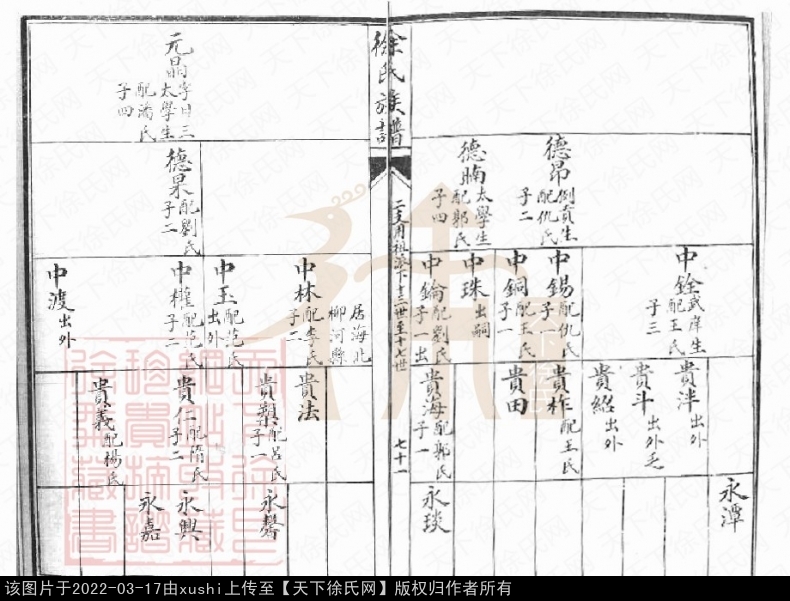 德昂 例貢生 配仇氏 子二
德暔 太學生 配郭氏 子四
中銓 武庠生 配王氏 子三
中錫 配仇氏 子一
中銅 配王氏 子一
中珠 出嗣
中鑰 配劉氏 子一出
貴泮 出外
貴斗 出外乏
貴紹 出外
貴柞 配王氏
貴田
貴海 配郭氏 子一
永潭
永琰
徐氏族譜
下十三世至十七世
七十一
元晶 字日三 太學生 配潘氏 子四
德杲 配劉氏 子二
居海北
柳河縣
中林 配李氏 子二
中玉 配范氏 出外
中權 配范氏 子二
中渡 出外
貴法
貴槼 配呂氏 子一
貴仁 配隋氏 子二
貴義 配楊氏
永馨
永興
永嘉
该图片于2022-03-17由xushi上传至【天下徐氏网】版权归作者所有